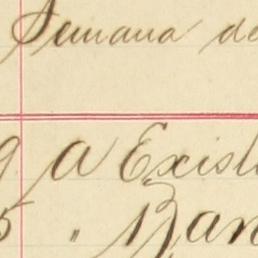 Semana de
9 a Exist
5 " Ban